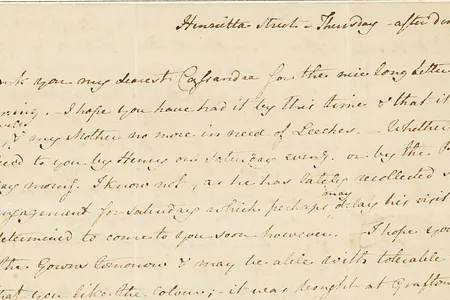 Henrietta Street - Thursday - after din
k you my dearest Cassandra for the nice long Letter
ning. I hope you have had it by this time & that it
& my Mother no more in need of Leeches. - Whether
to you by Henry on Saturday eveng or by the
mong. I know not, as he has lately recollected s
ngagement for Saturday which perhaps may delay his visit
determined to come to you soon however. I hope you
the Gown Tomorrow & may be able with tolerable
hat you like the Colour; - it was bought at Grafton